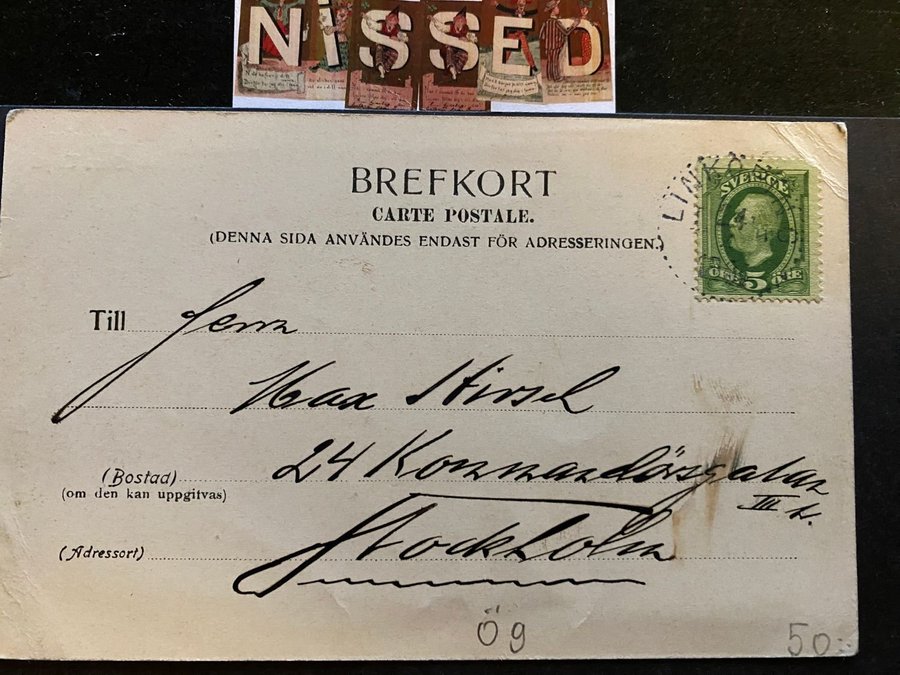 NISSED
BREFKORT
CARTE POSTALE.
(DENNA SIDA ANVÄNDES ENDAST FÖR ADRESSERINGEN.)
LINKÖ
SVERIGE
ÖRE 5 ÖRE
Till Herrn
Max Hirsch
24 Kommandörsgatan
(Bostad)
(om den kan uppgitvas)
III
(Adressort) Stockholm
Ög
50:-